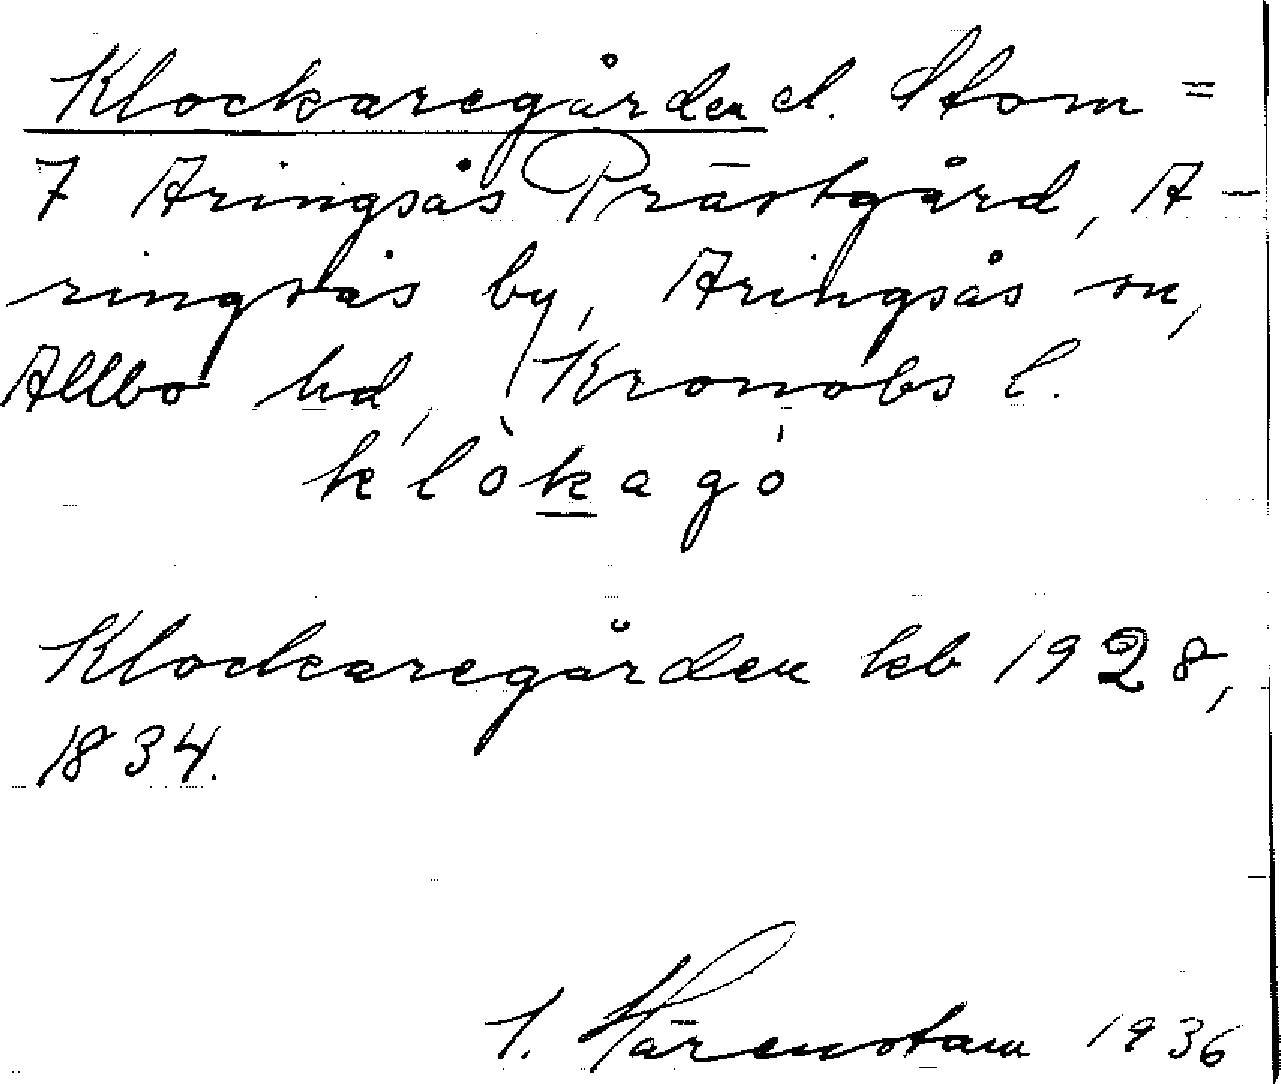 Klockaregården el. Stom =
7 Aringsås Prästgård, A-
ringsås by, Aringsås sn,
Allbo hd, Kronobs l.
klòkagó
Klockaregården kb 1928,
1834.
1936